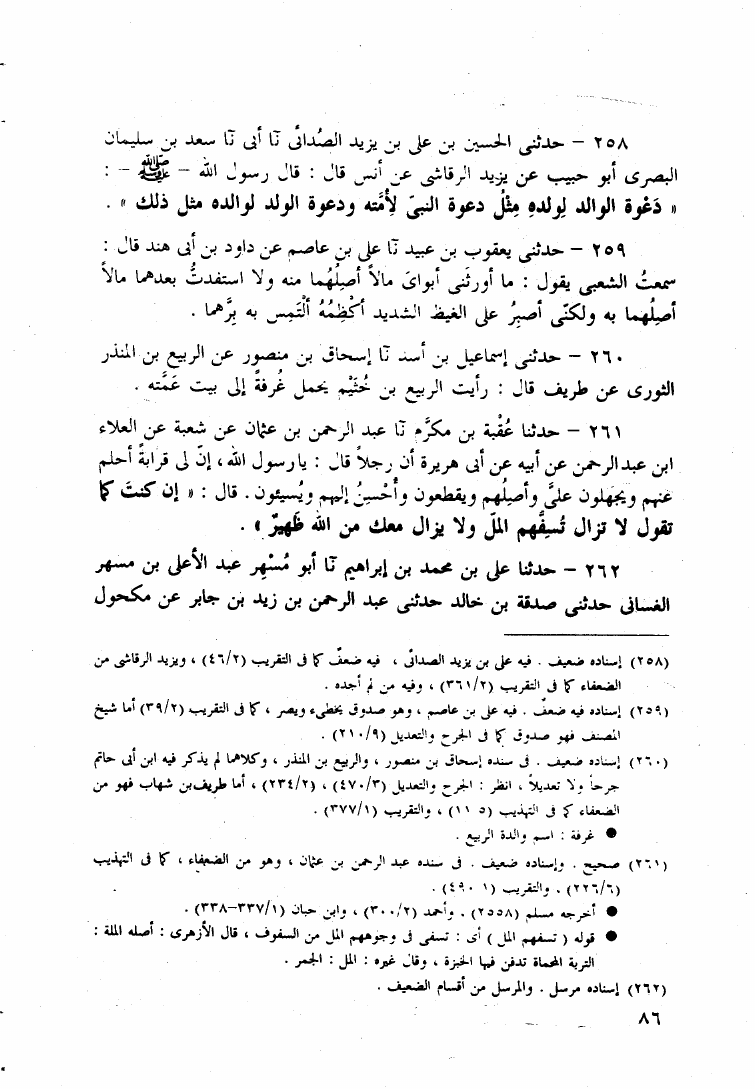 ٢٥٨ – حدثنى الحسين بن على بن يزيد الصُدائى نَا أبى نَا سعد بن سليمان
البصرى أبو حبيب عن يزيد الرقاشى عن أنس قال : قال رسول الله – ﷺ – :
« دَعْوة الوالد لِولدهِ مِثْلُ دعوة النبىّ لِأُمَّته ودعوة الولد لوالده مثل ذلك » .
٢٥٩ – حدثنى يعقوب بن عبيد نَا على بن عاصم عن داود بن أبى هند قال :
سمعتُ الشعبى يقول : ما أورثَنى أبواىَ مالاً أصِلُهُما منه ولا استفدتُ بعدهما مالاً
أصِلُهما به ولكنّى أصبِرُ على الغيظ الشديد أكْظِمُهُ ألْتَمِس به بِرَّهما .
٢٦٠ – حدثنى إسماعيل بن أسد نَا إسحاق بن منصور عن الربيع بن المنذر
الثورى عن طريف قال : رأيت الربيع بن خُثَيْم يحمل غُرفةً إلى بيت عَمَّته .
٢٦١ – حدثنا عُقْبة بن مكرَّم نَا عبد الرحمن بن عثمان عن شعبة عن العلاء
ابن عبدالرحمن عن أبيه عن أبى هريرة أن رجلاً قال : يارسول الله ، إنّ لى قرابةً أحلم
عنهم ويجهلون علىَّ وأصِلُهم ويقطعون وأُحْسِنُ إليهم ويُسيئون . قال : « إن كنتَ كما
تقول لا تزال تُسفُّهم الملّ ولا يزال معك من الله ظَهيرٌ » .
٢٦٢ – حدثنا على بن محمد بن إبراهيم نَا أبو مُسْهِر عبد الأعلى بن مسهر
الغسانى حدثنى صدقة بن خالد حدثنى عبد الرحمن بن زيد بن جابر عن مكحول
(٢٥٨) إسناده ضعيف . فيه على بن يزيد الصدائى ، فيه ضعفٌ كما فى التقريب (٤٦/٢) ، ويزيد الرقاشى من
الضعفاء كما فى التقريب (٣٦١/٢) ، وفيه من لم أجده .
(٢٥٩) إسناده فيه ضعفٌ . فيه على بن عاصم ، وهو صدوق يخطىء ويصر ، كما فى التقريب (٣٩/٢) أما شيخ
المصنف فهو صدوق كما فى الجرح والتعديل (٢١٠/٩) .
(٢٦٠) إسناده ضعيف . فى سنده إسحاق بن منصور ، والربيع بن المنذر ، وكلاهما لم يذكر فيه ابن أبى حاتم
جرحاً ولا تعديلاً ، انظر : الجرح والتعديل (٤٧٠/٣) ، (٢٣٤/٢) ، أما طريف بن شهاب فهو من
الضعفاء كما فى التهذيب (١١ ٥) ، والتقريب (٣٧٧/١) .
● غرفة : اسم والدة الربيع .
(٢٦١) صحيح . وإسناده ضعيف . فى سنده عبد الرحمن بن عثمان ، وهو من الضعفاء ، كما فى التهذيب
(٢٢٦/٦) . والتقريب (١ ٤٩٠) .
● أخرجه مسلم (٢٥٥٨) . وأحمد (٣٠٠/٢) ، وابن حبان (٣٣٧/١–٣٣٨) .
● قوله ( تسفهم المل ) أى : تسفى فى وجوههم المل من السفوف ، قال الأزهرى : أصله الملة :
التربة المحماة تدفن فيها الخبزة ، وقال غيره : المل : الجمر .
(٢٦٢) إسناده مرسل . والمرسل من أقسام الضعيف .
٨٦